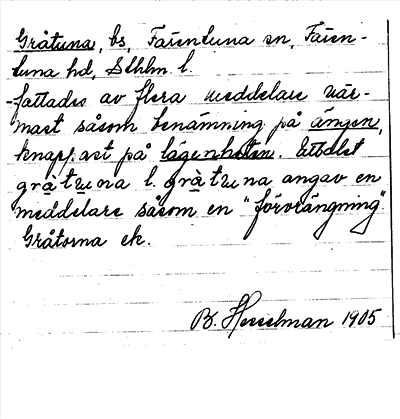 Gråtuna, bs, Färentuna sn, Fären-
tuna hd, Sthlm. l.
-fattades av flera meddelare när-
mast såsom benämning på ängen,
knappast på lägenheten. Uttalet
gràtuna l. gråtuna angav en
meddelare såsom en "förvrängning".
Gråtorna ek.
B. Hesselman 1905